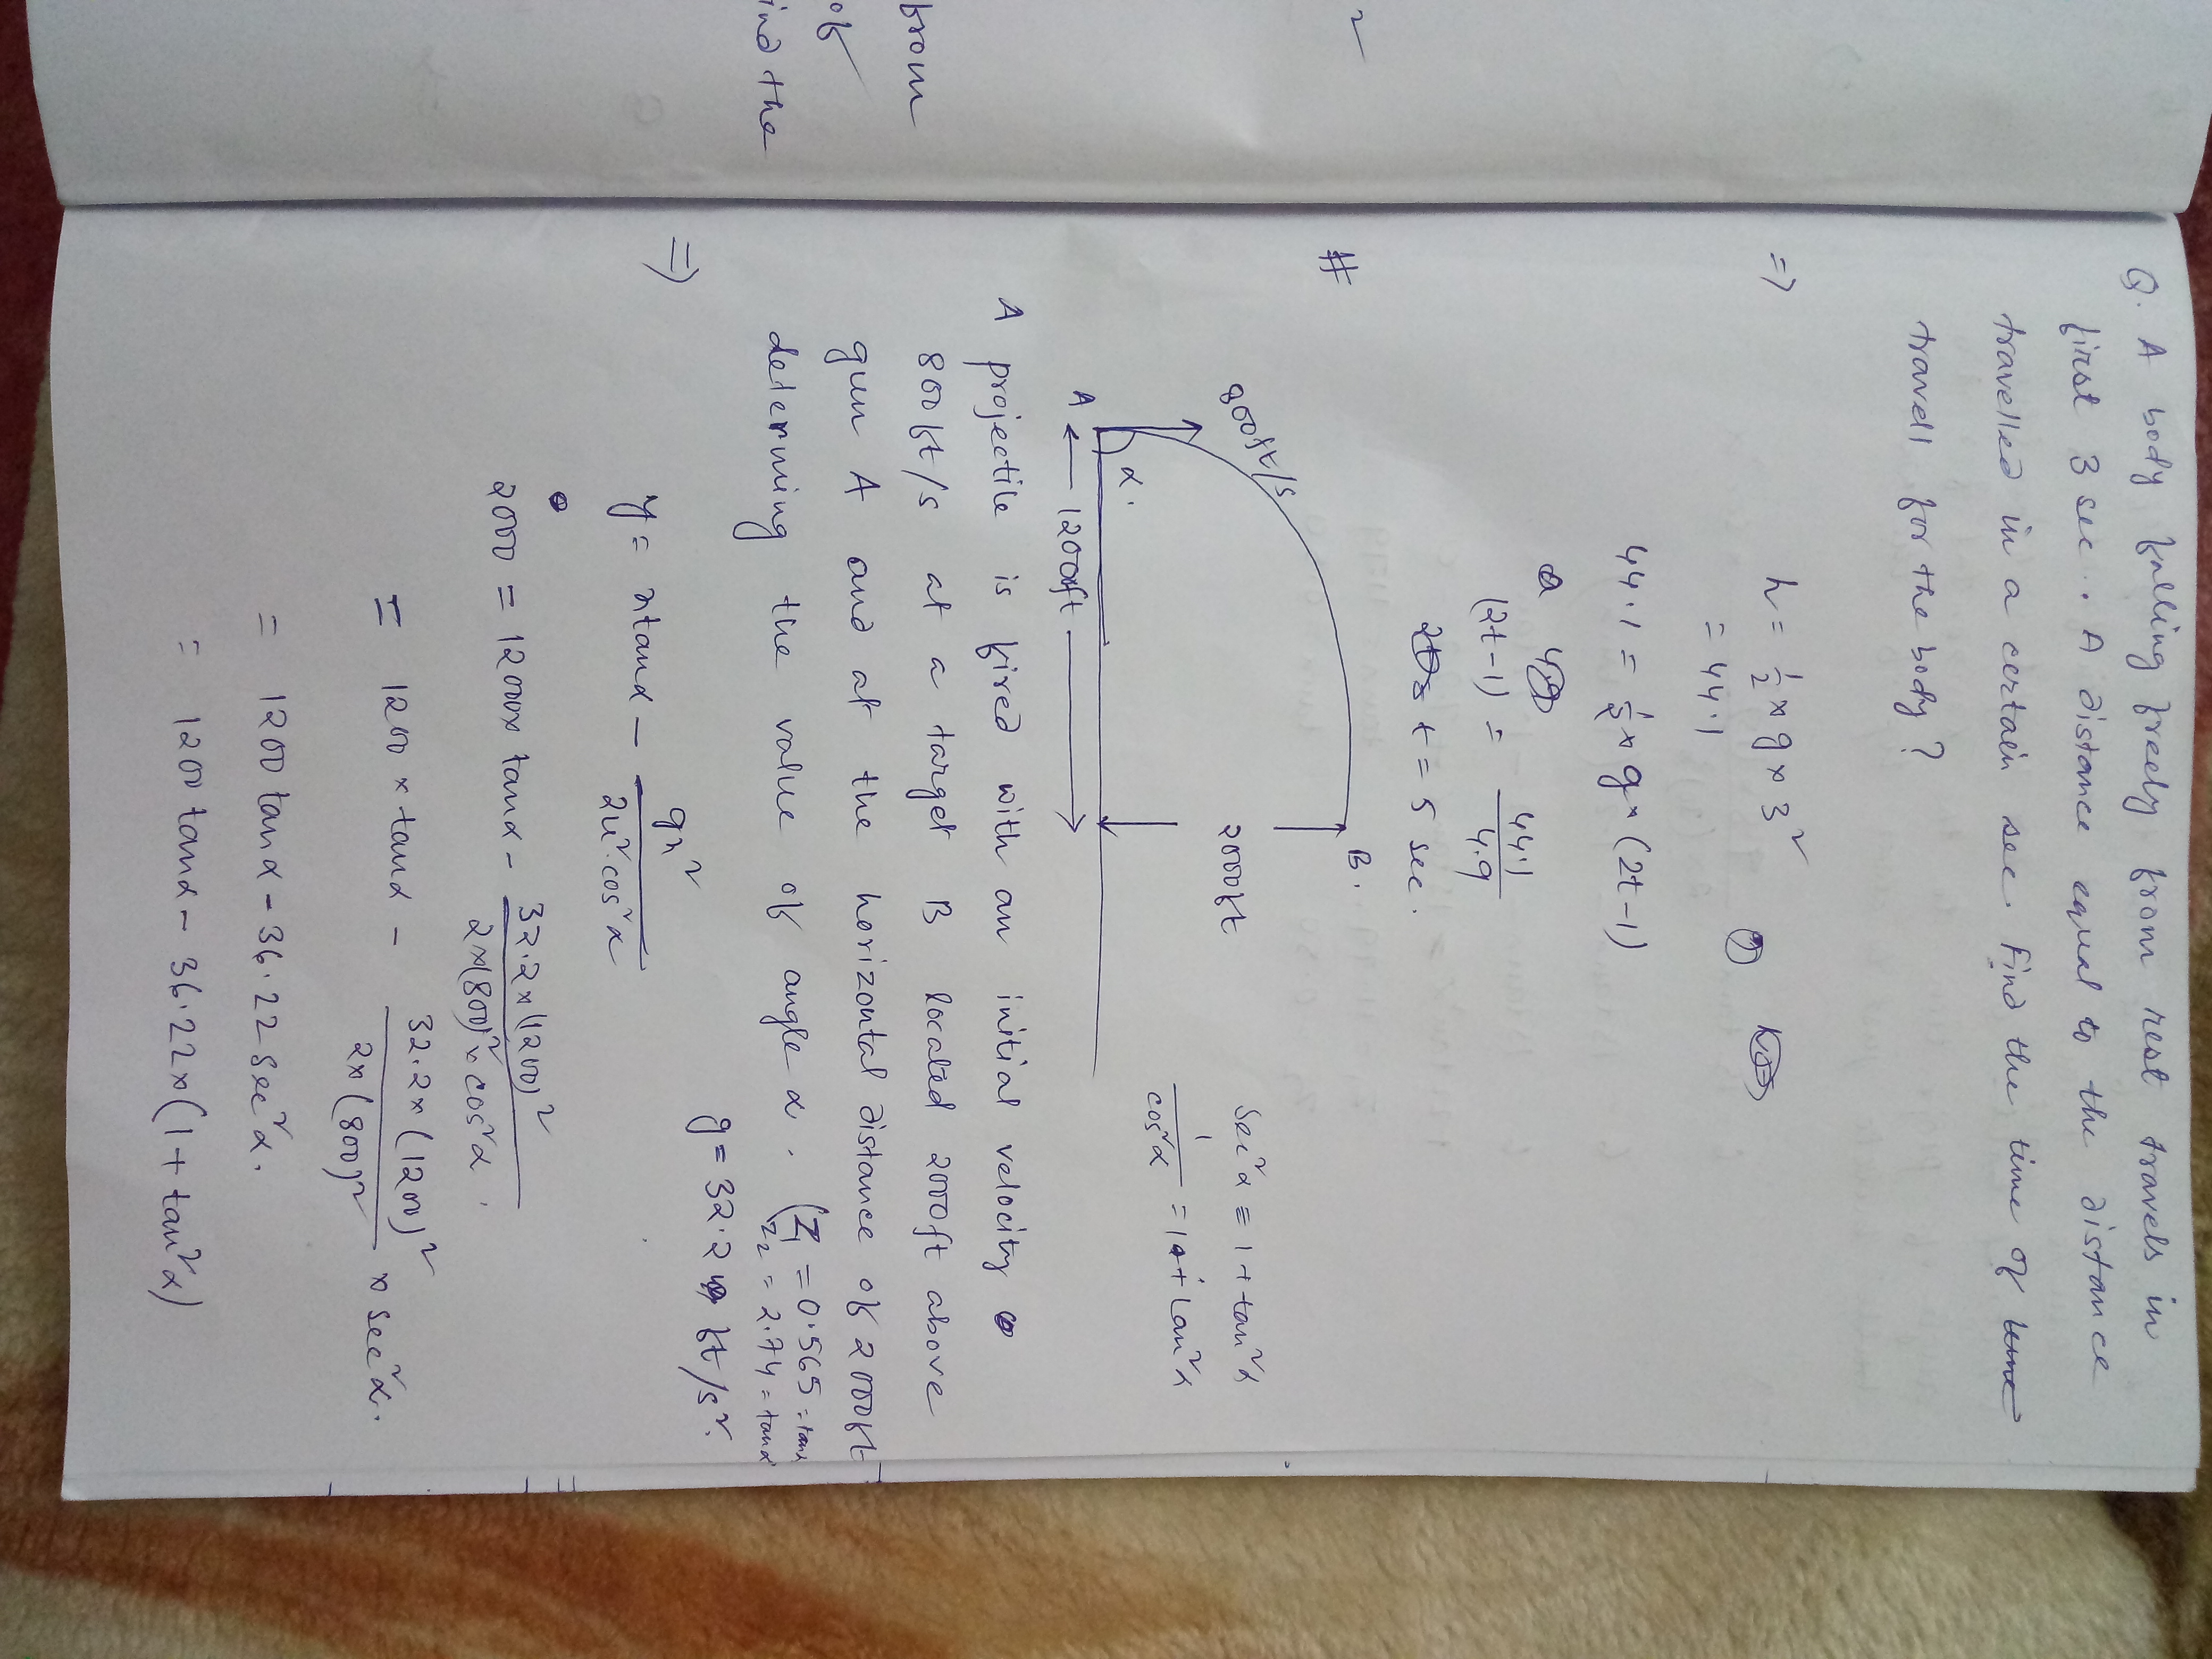 2
from
of
ind the
Q. A body falling freely from rest travels in
first 3 sec. A distance equal to the distance
travelled in a certain sec. Find the time of
travell for the body?
=> h = 1/2 × g × 3²
= 44.1
44.1 = 1/2 × g × (2t-1)
(2t-1) = 44.1/4.9
t = 5 sec.
#
B.
800ft/s
2000ft
Sec²α = 1 + tan²α
1/cos²α = 1 + tan²α
α.
A
1200ft
A projectile is fired with an initial velocity
800ft/s at a target B located 2000ft above
gun A and at the horizontal distance of 2000ft
determing the value of angle α. (Z₁ = 0.565 = tanα
Z₂ = 2.74 = tanα
g = 32.2 ft/s².
=> y = x tanα - gx²/2u².cos²α
2000 = 12000× tanα - 32.2×(1200)²/2×(800)²×cos²α.
= 1200 × tanα - 32.2×(1200)²/2×(800)² × sec²α.
= 1200 tanα - 36.22 sec²α.
= 1200 tanα - 36.22×(1 + tan²α)